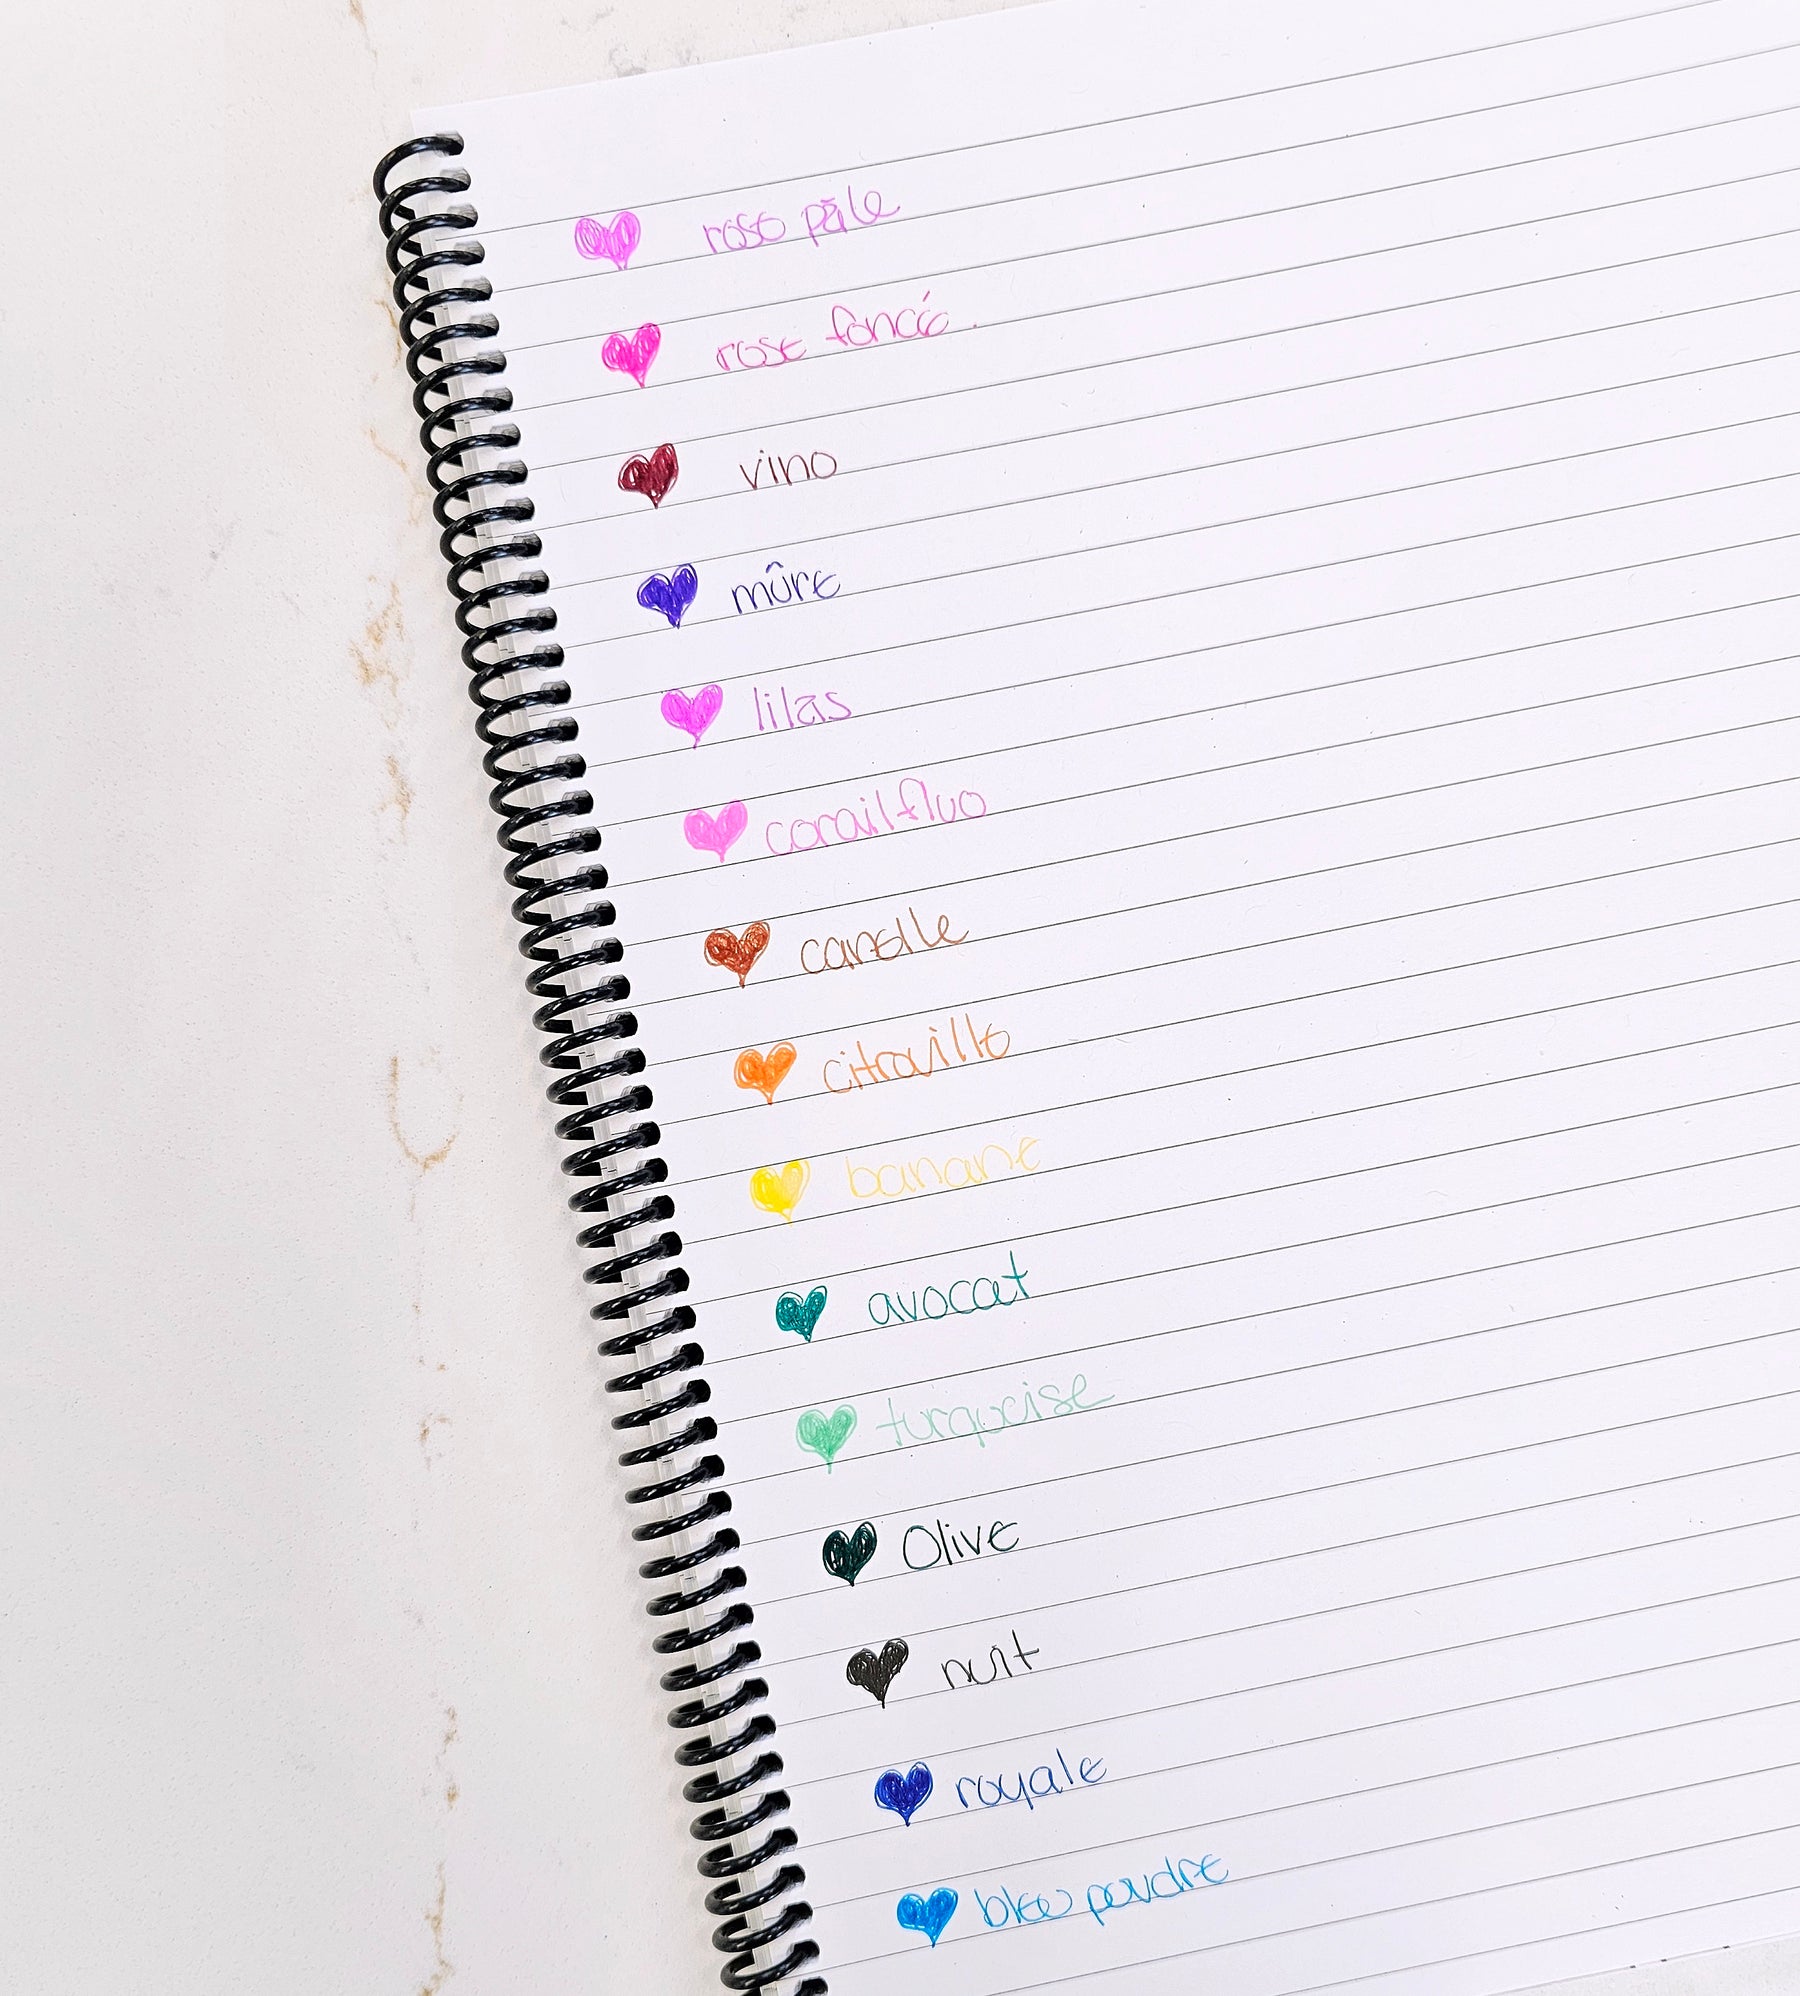 rose pâle
rose foncé.
vino
mûre
lilas
corail fluo
canelle
citrouille
banane
avocat
turquoise
Olive
nuit
royale
bleu poudre